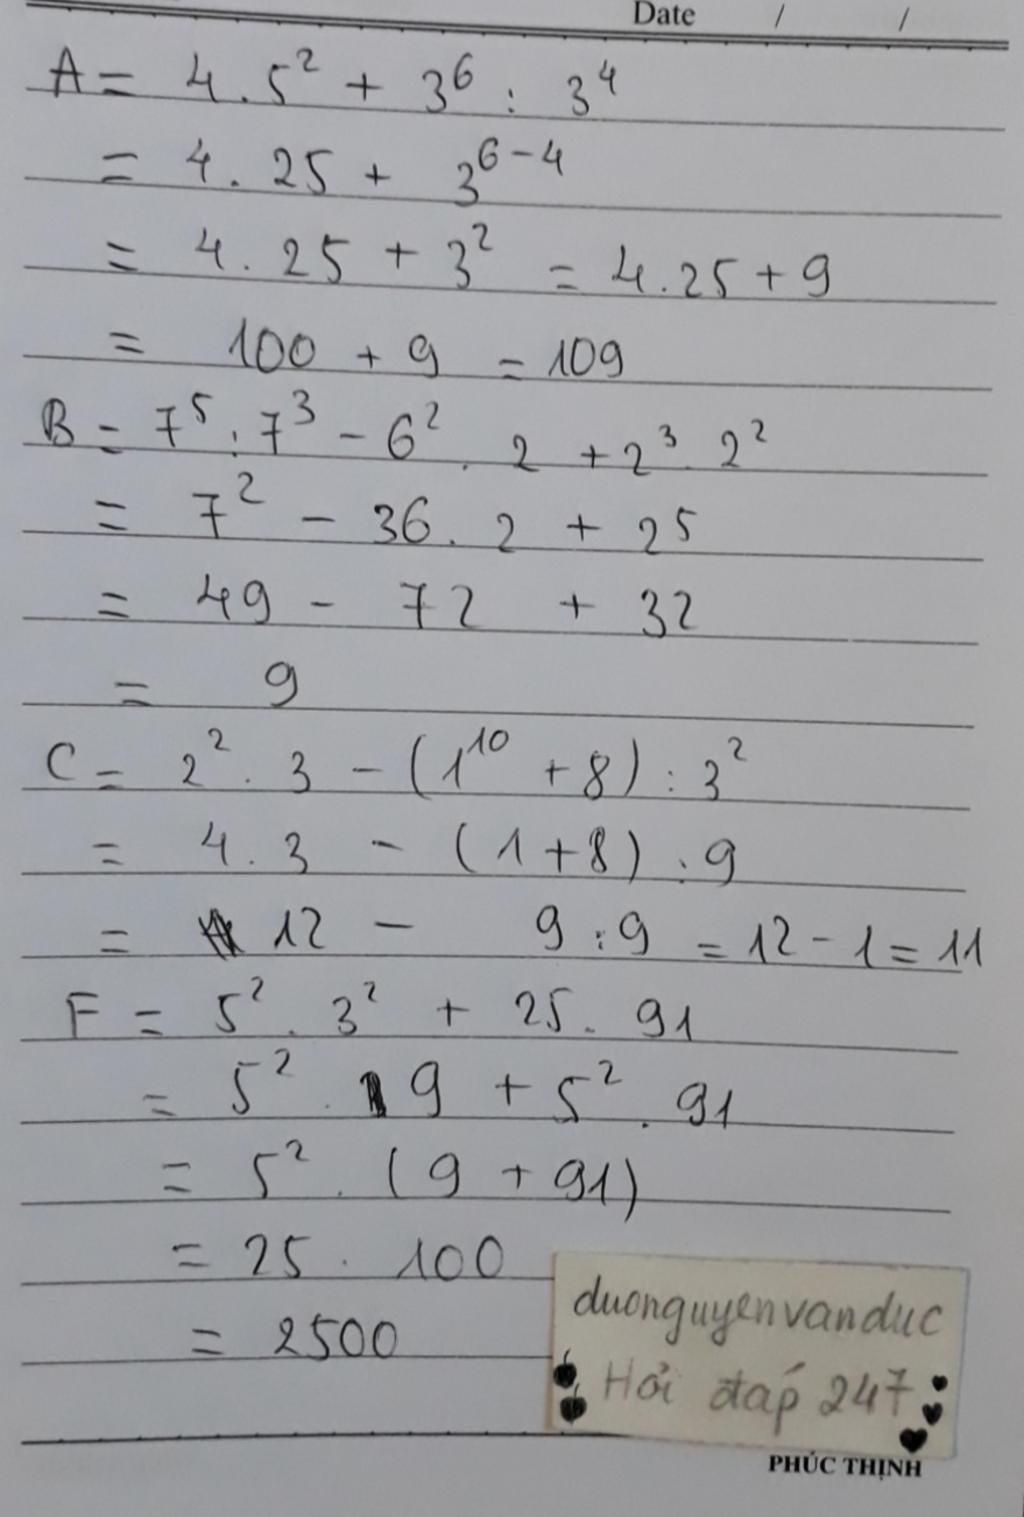 Date / /
A = 4 . 5² + 3⁶ : 3⁴
= 4 . 25 + 3⁶⁻⁴
= 4 . 25 + 3² = 4 . 25 + 9
= 100 + 9 = 109
B = 7⁵ : 7³ - 6² . 2 + 2³ . 2²
= 7² - 36 . 2 + 2⁵
= 49 - 72 + 32
= 9
C = 2² . 3 - (1¹⁰ + 8) : 3²
= 4 . 3 - (1 + 8) : 9
= 12 - 9 : 9 = 12 - 1 = 11
F = 5² . 3² + 25 . 91
= 5² . 9 + 5² . 91
= 5² . (9 + 91)
= 25 . 100
= 2500
duonguyenvanduc
Hỏi đáp 247
PHÚC THỊNH